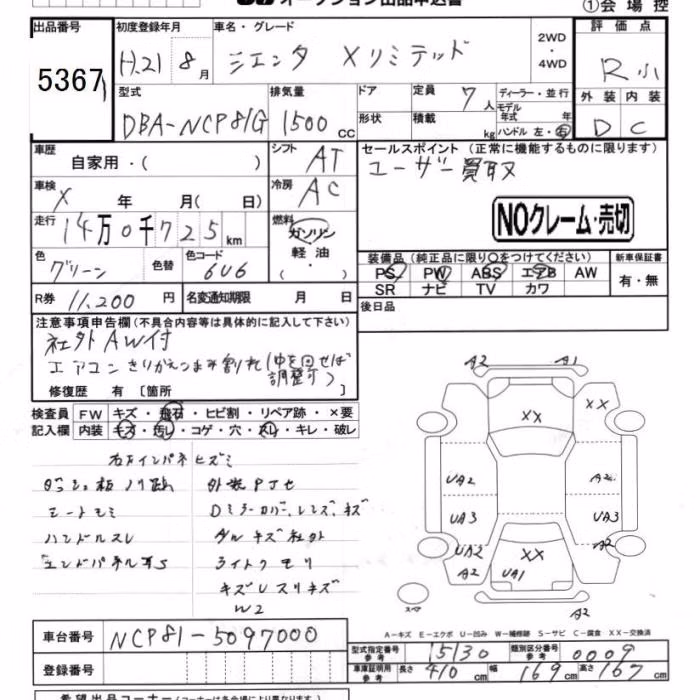 オークション出品申込書 ①会場控
出品番号 初度登録年月 車名・グレード 評価点
5367 H.21 8月 シエンタ Xリミテッド 2WD・4WD R小
型式 排気量 ドア 定員 7人 ディーラー・並行 外装 内装
DBA-NCP81G 1500cc 形状 積載 kg モデル年式 年 ハンドル 左・右 D C
車歴 自家用・( ) シフト AT セールスポイント (正常に機能するものに限ります)
車検 X 年 月( 日) 冷房 AC ユーザー買取
走行 14万0千725km 燃料 ガソリン・軽油・( ・ ) NOクレーム・売切
色 グリーン 色替 色コード 6U6 装備品(純正品に限り○をつけてください) 新車保証書
PS PW ABS エアB AW 有・無
SR ナビ TV カワ
R券 11,200円 名変通知期限 月 日 後日品
注意事項申告欄(不具合内容等は具体的に記入して下さい)
社外AW付
エアコンきりかえつまみ割れ(中を回せば調整可)
修復歴 有 〔箇所 〕
検査員 FW キズ・飛石・ヒビ割・リペア跡・×要
記入欄 内装 キズ・汚レ・コゲ・穴・スレ・キレ・破レ
右方インパネヒズミ
外装Pナセ
シートモミ Dミラーカバー、レンズ、キズ
ハンドルスレ アルミキズ社外
エンドパネルサS ライトクモリ
キズUスリキズ
W2
A2 A1
XX XX
UA2 A2
UA3 UA3
UA2 XX A2
A2 UA1
スペア A2
A-キズ E-エクボ U-凹み W-補修跡 S-サビ C-腐食 XX-交換済
車台番号 NCP81-5097000 型式指定番号 参考 15130 類別区分番号 参考 0009
登録番号 車庫証明用 参考 長さ 410cm 幅 169cm 高さ 167cm
希望出品コーナー(コーナーは各会場により異なります)